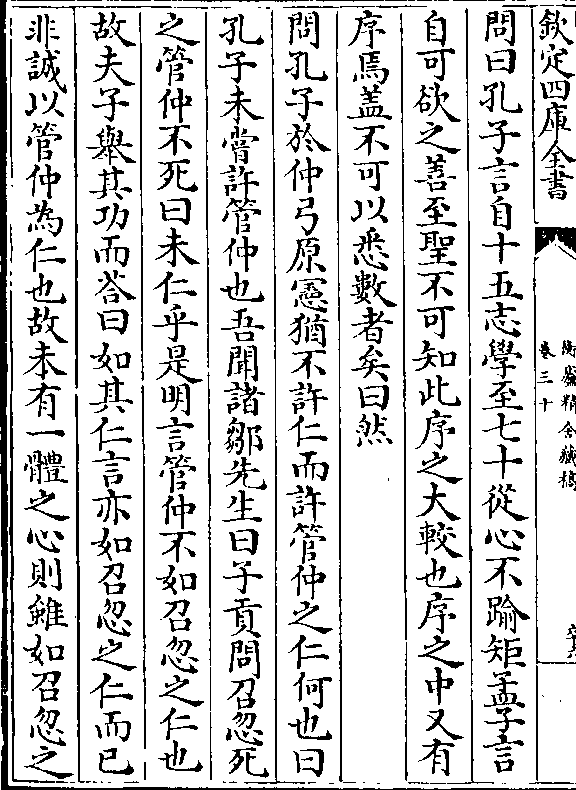 欽定四庫全書
衡廬精舍藏稿
卷三十
問曰孔子言自十五志學至七十從心不踰矩孟子言
自可欲之善至聖不可知此序之大較也序之中又有
序焉盖不可以悉數者矣曰然
問孔子於仲弓原憲猶不許仁而許管仲之仁何也曰
孔子未嘗許管仲也吾聞諸鄒先生曰子貢問召忽死
之管仲不死曰未仁乎是明言管仲不如召忽之仁也
故夫子舉其功而荅曰如其仁言亦如召忽之仁而已
非誠以管仲為仁也故未有一體之心則雖如召忽之